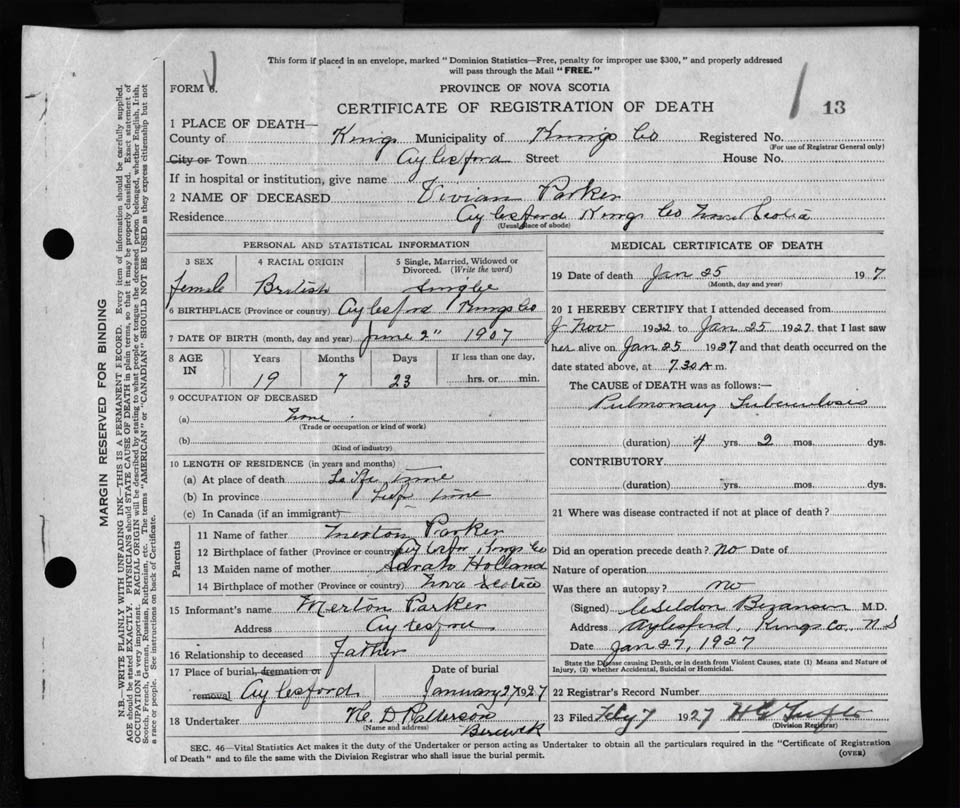 This form if placed in an envelope, marked "Dominion Statistics—Free, penalty for improper use $300," and properly addressed
will pass through the Mail "FREE."
FORM 6.
PROVINCE OF NOVA SCOTIA
CERTIFICATE OF REGISTRATION OF DEATH
13
1 PLACE OF DEATH—
County of Kings Municipality of Kings Co Registered No.
(For use of Registrar General only)
City or Town Aylesford Street House No.
If in hospital or institution, give name
2 NAME OF DECEASED Vivian Parker
Residence Aylesford Kings Co Nova Scotia
(Usual place of abode)
PERSONAL AND STATISTICAL INFORMATION
3 SEX 4 RACIAL ORIGIN 5 Single, Married, Widowed or Divorced. (Write the word)
female British Single
6 BIRTHPLACE (Province or country) Aylesford Kings Co
7 DATE OF BIRTH (month, day and year) June 2" 1907
8 AGE IN Years Months Days If less than one day,
19 7 23 hrs. or min.
9 OCCUPATION OF DECEASED
(a) None
(Trade or occupation or kind of work)
(b)
(Kind of industry)
10 LENGTH OF RESIDENCE (in years and months)
(a) At place of death Life time
(b) In province Life time
(c) In Canada (if an immigrant)
Parents
11 Name of father Merton Parker
12 Birthplace of father (Province or country) Aylesford Kings Co
13 Maiden name of mother Sarah Holland
14 Birthplace of mother (Province or country) Nova Scotia
15 Informant's name Merton Parker
Address Aylesford
16 Relationship to deceased Father
17 Place of burial, cremation or removal Aylesford
Date of burial January 27 1927
18 Undertaker H. D Patterson
(Name and address) Berwick
MEDICAL CERTIFICATE OF DEATH
19 Date of death Jan 25 19 7
(Month, day and year)
20 I HEREBY CERTIFY that I attended deceased from
Nov 1922 to Jan 25 1927. that I last saw
her alive on Jan 25 1927 and that death occurred on the
date stated above, at 7.30 A m.
The CAUSE of DEATH was as follows:—
Pulmonary Tuberculosis
(duration) 4 yrs. 2 mos. dys.
CONTRIBUTORY
(duration) yrs. mos. dys.
21 Where was disease contracted if not at place of death?
Did an operation precede death? no Date of
Nature of operation
Was there an autopsy? no
(Signed) Bezanson M.D.
Address Aylesford, Kings Co., N S
Date Jan 27, 1927
State the Disease causing Death, or in death from Violent Causes, state (1) Means and Nature of
Injury, (2) whether Accidental, Suicidal or Homicidal.
22 Registrar's Record Number
23 Filed Feby 7 1927
(Division Registrar)
SEC. 46—Vital Statistics Act makes it the duty of the Undertaker or person acting as Undertaker to obtain all the particulars required in the "Certificate of Registration
of Death" and to file the same with the Division Registrar who shall issue the burial permit.
(OVER)
MARGIN RESERVED FOR BINDING
N.B.—WRITE PLAINLY WITH UNFADING INK—THIS IS A PERMANENT RECORD. Every item of information should be carefully supplied.
AGE should be stated EXACTLY. PHYSICIANS should STATE CAUSE OF DEATH in plain terms, so that it may be properly classified. Exact statement of
OCCUPATION is very important. RACIAL ORIGIN will be described by stating to what people or tongue the deceased person belonged, whether English, Irish,
Scotch, French, German, Russian, Ruthenian, etc. The terms "AMERICAN" or "CANADIAN" SHOULD NOT BE USED as they express citizenship but not
a race or people. See instructions on back of Certificate.